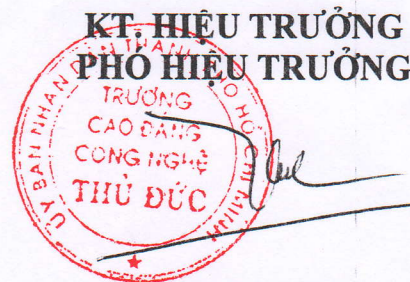 KT. HIỆU TRƯỞNG
PHÓ HIỆU TRƯỞNG
ỦY BAN NHÂN DÂN THÀNH PHỐ HỒ CHÍ MINH
TRƯỜNG
CAO ĐẲNG
CÔNG NGHỆ
THỦ ĐỨC